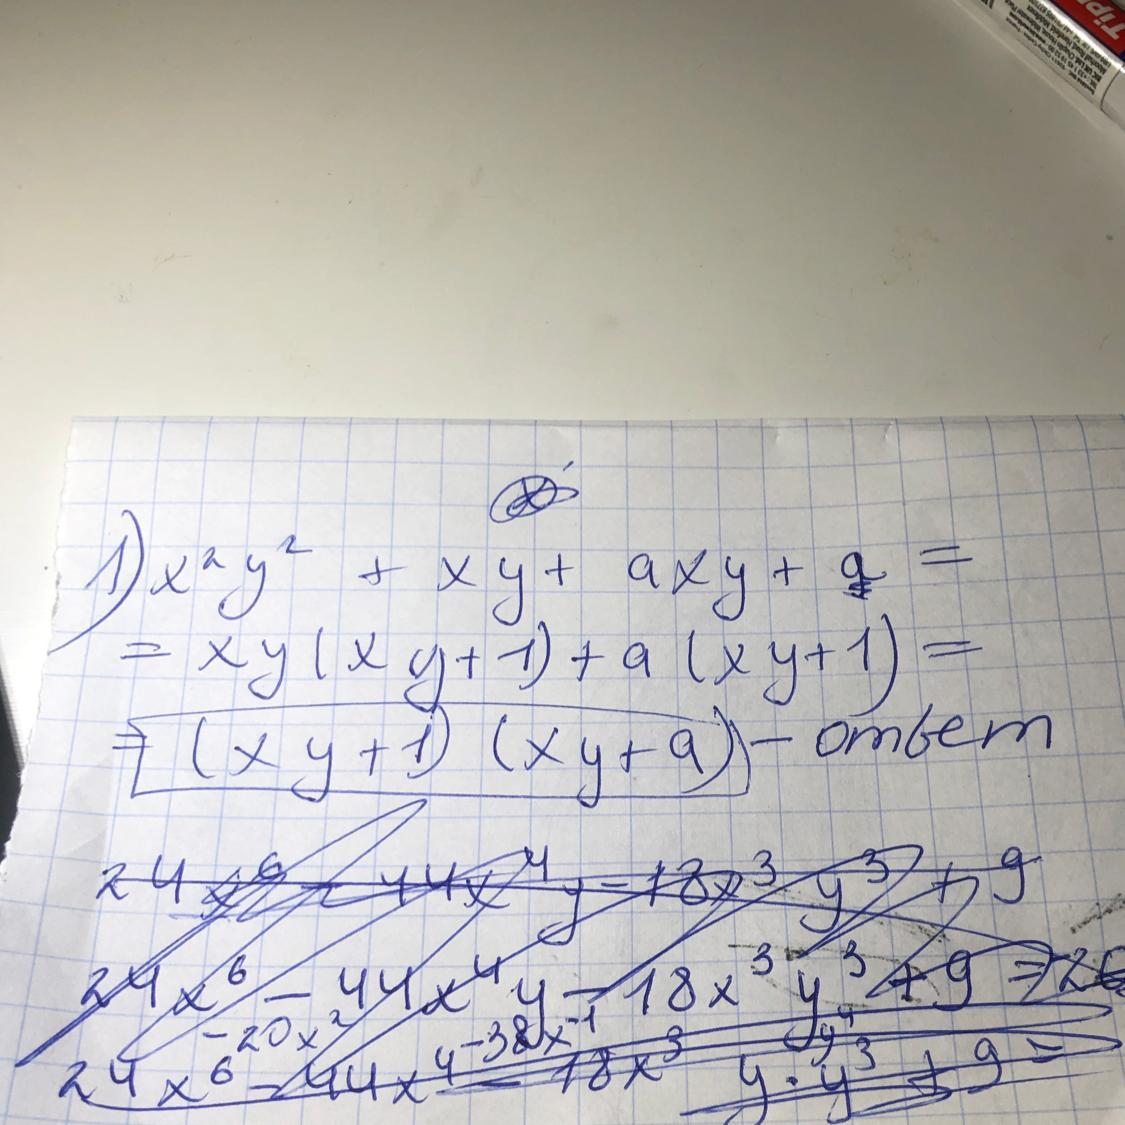 1) x² y² + xy + axy + a =
= xy (xy+1) + a (xy+1) =
= (xy+1) (xy+a) - ответ
24x⁶ - 44x⁴y - 18x³y³ + 9
24x⁶ - 44x⁴y - 18x³y³ + 9 =
24x⁶ - 44x⁴ - 18x³ y·y³ + 9 =